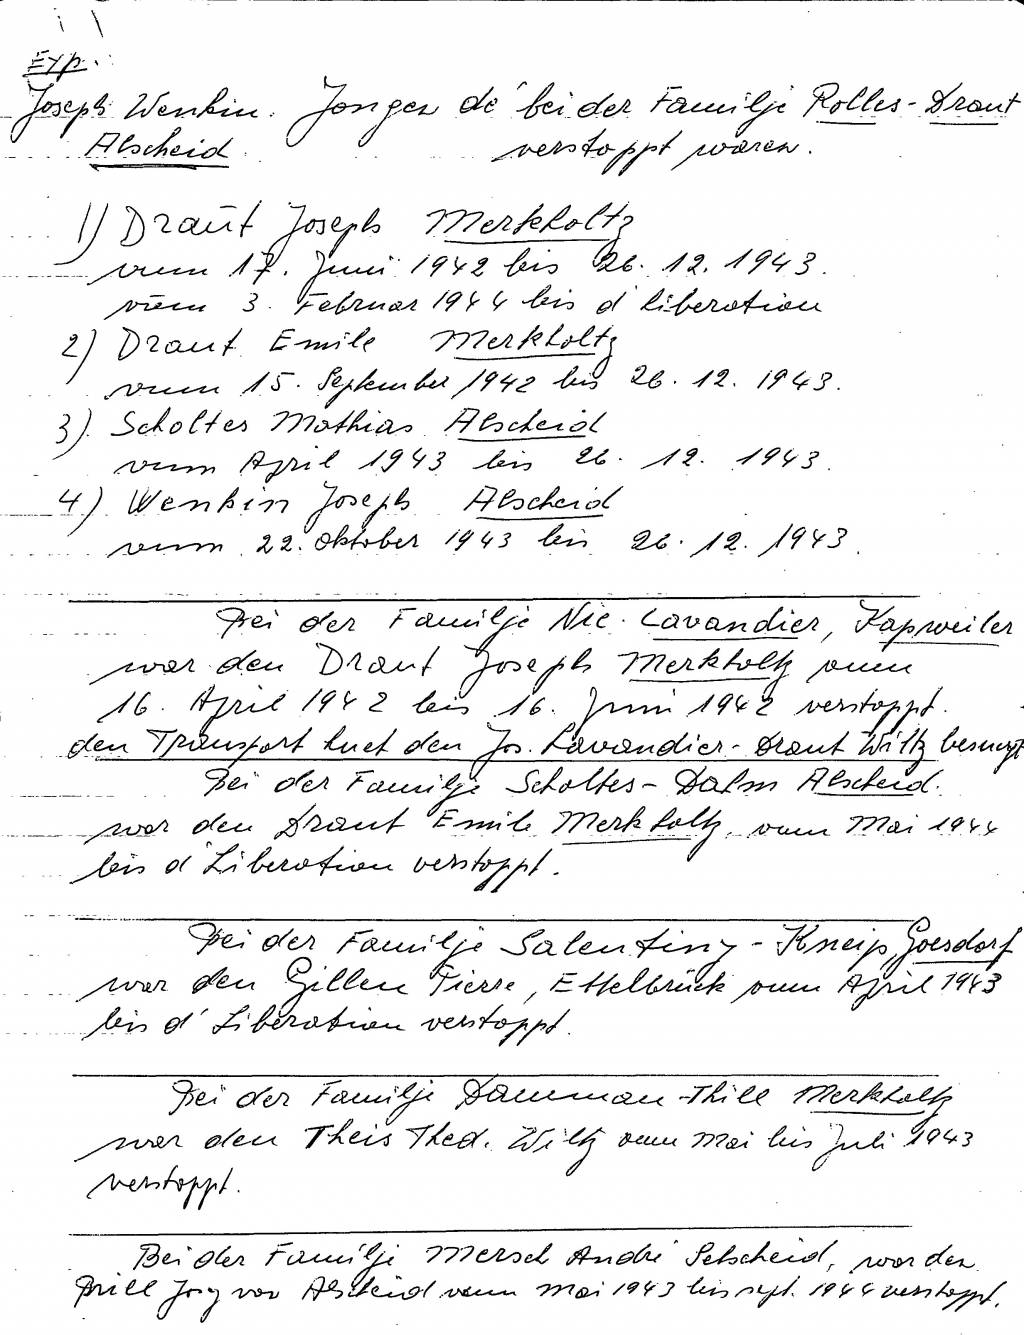 Exp.
Joseph Wenkin. Jongen de' bei der Familje Rolles-Draut
Alscheid verstoppt waren.
1) Draut Joseph Merkholtz
vum 17. Juni 1942 bis 26. 12. 1943.
vum 3. Februar 1944 bis d'liberation
2) Draut Emile Merkholtz
vum 15. September 1942 bis 26. 12. 1943.
3) Scholtes Mathias Alscheid
vum April 1943 bis 26. 12. 1943.
4) Wenkin Joseph Alscheid
vum 22. Oktober 1943 bis 26. 12. 1943
Bei der Familje Nic. Lavandier, Kapweiler
war den Draut Joseph Merkholtz vum
16. April 1942 bis 16. Juni 1942 verstoppt.
den Transport huet den Jos. Lavandier-Draut Wiltz besuegt
Bei der Familje Scholtes-Dahm Alscheid.
war den Draut Emile Merkholtz, vum Mai 1944
bis d'Liberation verstoppt.
Bei der Familje Salentiny-Kneip, Goesdorf
war den Gillen Pierre, Ettelbrück vum April 1943
bis d'Liberation verstoppt.
Bei der Familje Damman-Thill Merkholtz
war den Theis Thed. Wiltz vum Mai bis Juli 1943
verstoppt.
Bei der Familje Mersch André Selscheid, war den
Prill Josy van Alscheid vum Mai 1943 bis sept. 1944 verstoppt.